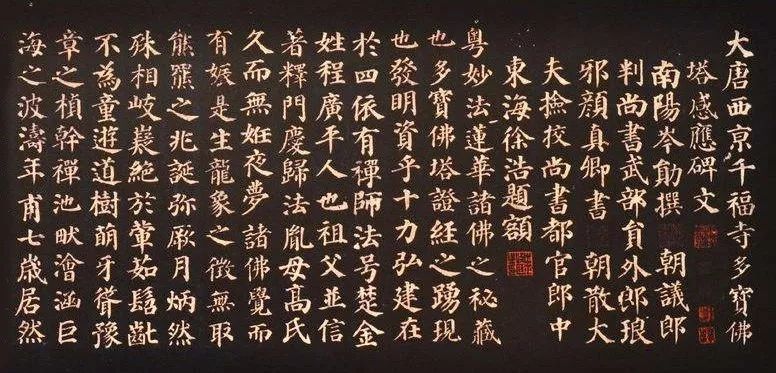 大唐西京千福寺多寶佛
塔感應碑文
南陽岑勛撰 朝議郎
判尚書武部員外郎琅
邪顏真卿書 朝散大
夫撿挍尚書都官郎中
東海徐浩題額
粵妙法蓮華諸佛之秘藏
也多寶佛塔證經之踴現
也發明資乎十力弘建在
於四依有禪師法号楚金
姓程廣平人也祖父並信
著釋門慶歸法胤母高氏
久而無姙夜夢諸佛覺而
有娠是生龍象之徵無取
熊羆之兆誕弥厥月炳然
殊相岐嶷絕於葷茹髫齔
不為童遊道樹萌牙聳豫
章之楨幹禪池畎澮涵巨
海之波濤年甫七歲居然